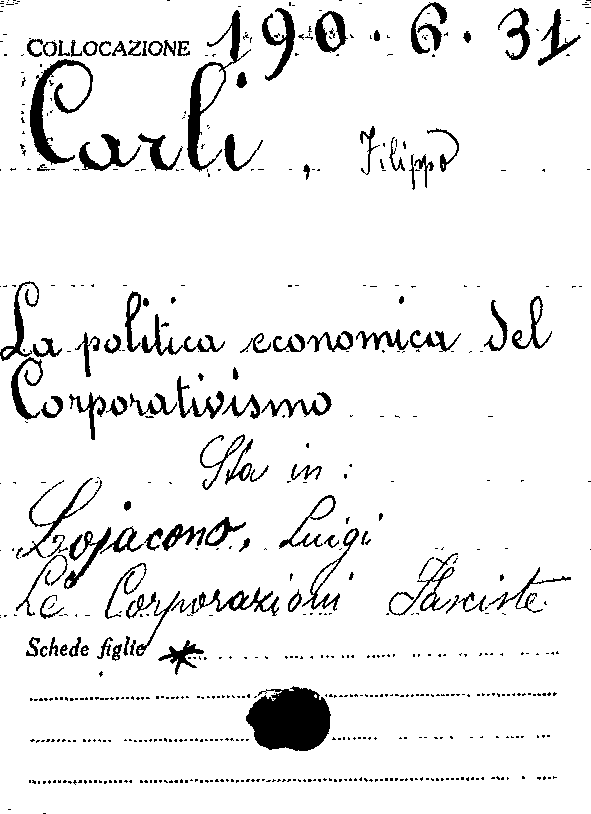 COLLOCAZIONE 190.6.31
Carli, Filippo
La politica economica del
Corporativismo
Sta in:
Lojacono, Luigi
Le Corporazioni Fasciste
Schede figlie *